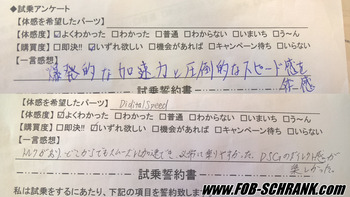 ◆試乗アンケート
【体感を希望したパーツ】
【体感度】☑よくわかった □わかった □普通 □わからない □いまいち □う～ん
【購買度】□即決!! ☑いずれ欲しい □機会があれば □キャンペーン待ち □いらない
【一言感想】
爆発的な加速力と圧倒的なスピード感を体感
試乗誓約書
【体感を希望したパーツ】 DigitalSpeed
【体感度】☑よくわかった □わかった □普通 □わからない □いまいち □う～ん
【購買度】□即決!! ☑いずれ欲しい □機会があれば □キャンペーン待ち □いらない
【一言感想】
トルクがあり、どこからでもスムーズに加速でき、非常に乗りやすかった。DSCの
楽しかった。
試乗誓約書
私は試乗をするにあたり、下記の項目を誓約致します
WWW.FOB-SCHRANK.COM